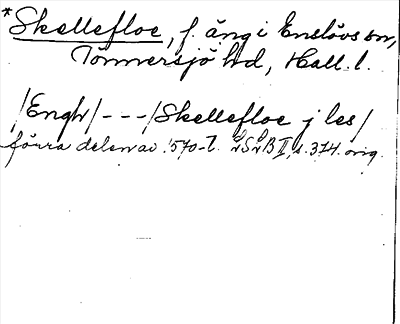 *Skellefloe, f. äng i Enslövs sn,
Tönnersjö hd, Hall. l.
/Engh/---/Skellefloe j les/
förra delen av 1570-t. SB II, s. 374. orig.